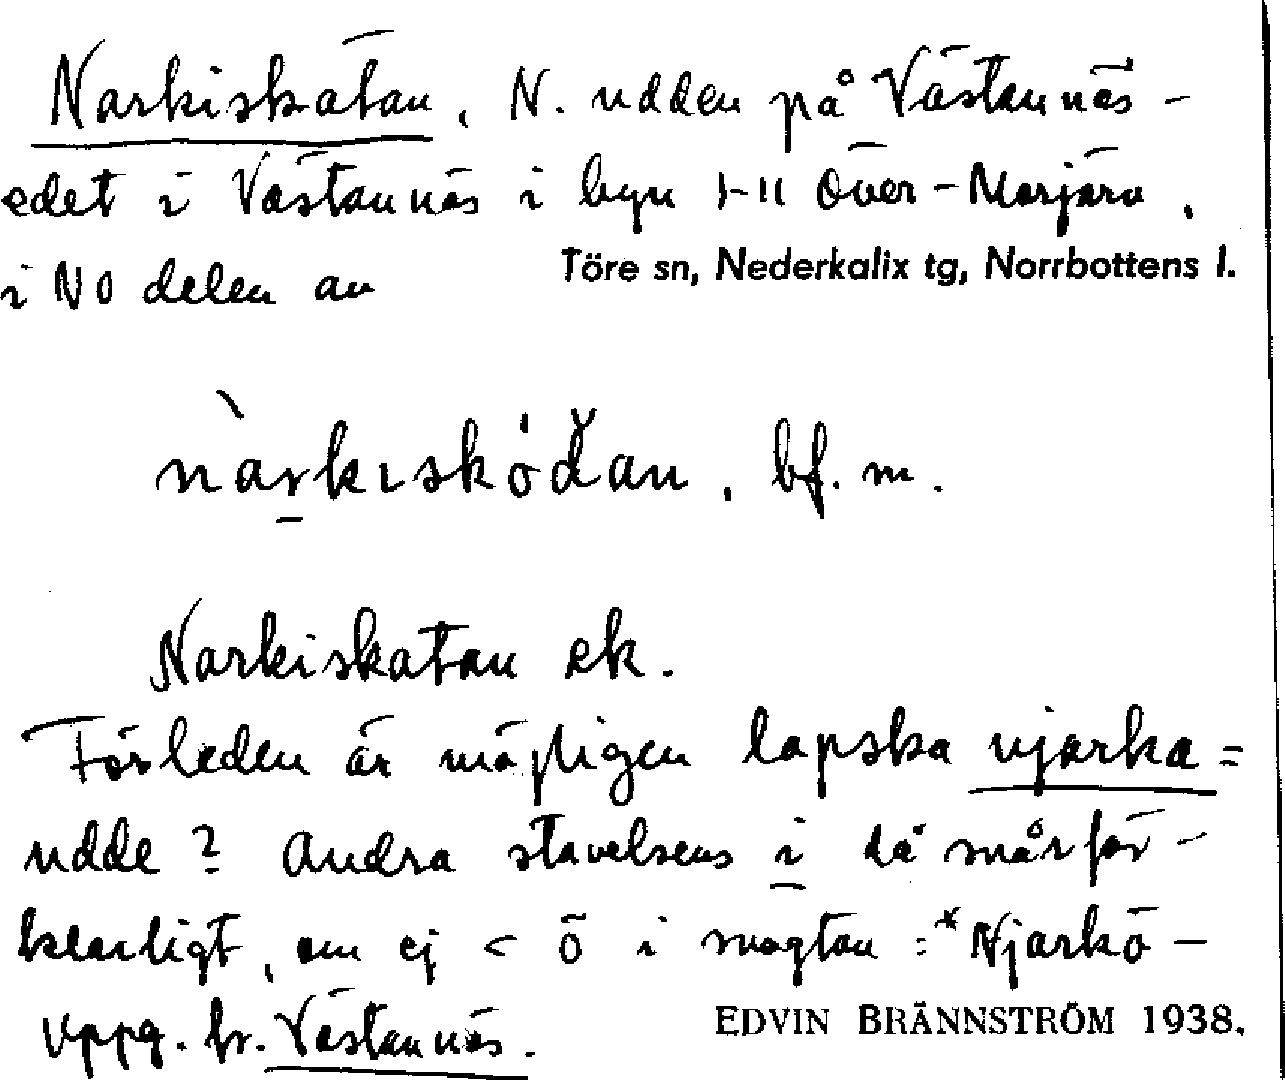 Narkiskätan, N. udden på Västannäs-
edet i Västannäs i byn 1-11 Över-Morjärv,
i NO delen av Töre sn, Nederkalix tg, Norrbottens l.
bf. m.
Narkiskatan ek.
Förleden är möjligen lapska njarka =
udde? Andra stavelsens i då svårför-
klarligt, om ej < ö i svagton: *Njarkö-
Uppg. fr. Västannäs.
EDVIN BRÄNNSTRÖM 1938.